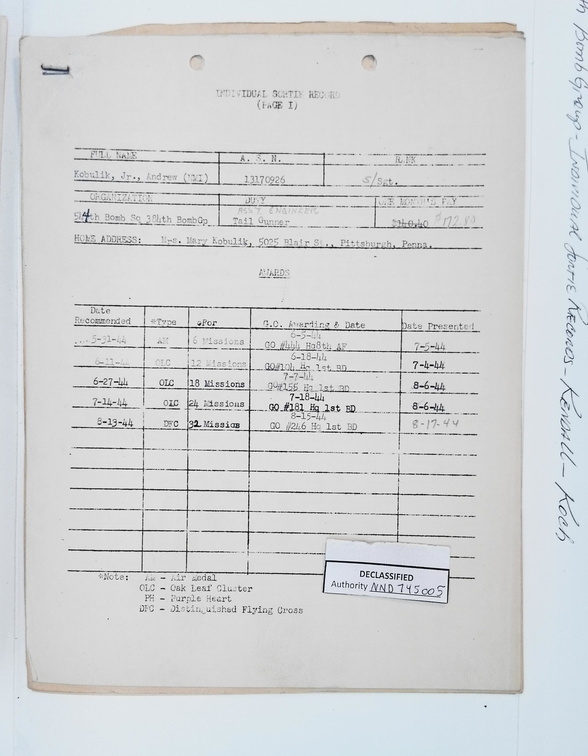 INDIVIDUAL SORTIE RECORD
(PAGE I)
FULL NAME A. S. N. RANK
Kobulik, Jr., Andrew (NMI) 13170926 S/Sgt.
ORGANIZATION DUTY ONE MONTH'S PAY
ASST ENGINEER
544th Bomb Sq 384th BombGp Tail Gunner $140.40 $172.80
HOME ADDRESS: Mrs. Mary Kobulik, 5025 Blair St., Pittsburgh, Penna.
AWARDS
Date
Recommended *Type *For G.O. Awarding & Date Date Presented
6-5-44
5-31-44 AM 6 Missions GO #444 Hq8th AF 7-5-44
6-18-44
6-11-44 OLC 12 Missions GO#104 Hq 1st BD 7-4-44
7-7-44
6-27-44 OLC 18 Missions GO#155 Hq 1st BD 8-6-44
7-18-44
7-14-44 OLC 24 Missions GO #181 Hq 1st BD 8-6-44
8-15-44
8-13-44 DFC 32 Mission GO #246 Hq 1st BD 8-17-44
*Note: AM - Air Medal
OLC - Oak Leaf Cluster
PH - Purple Heart
DFC - Distinguished Flying Cross
DECLASSIFIED
Authority NND 745005
Bomb Group - Individual Sortie Records - Kendall - Koch